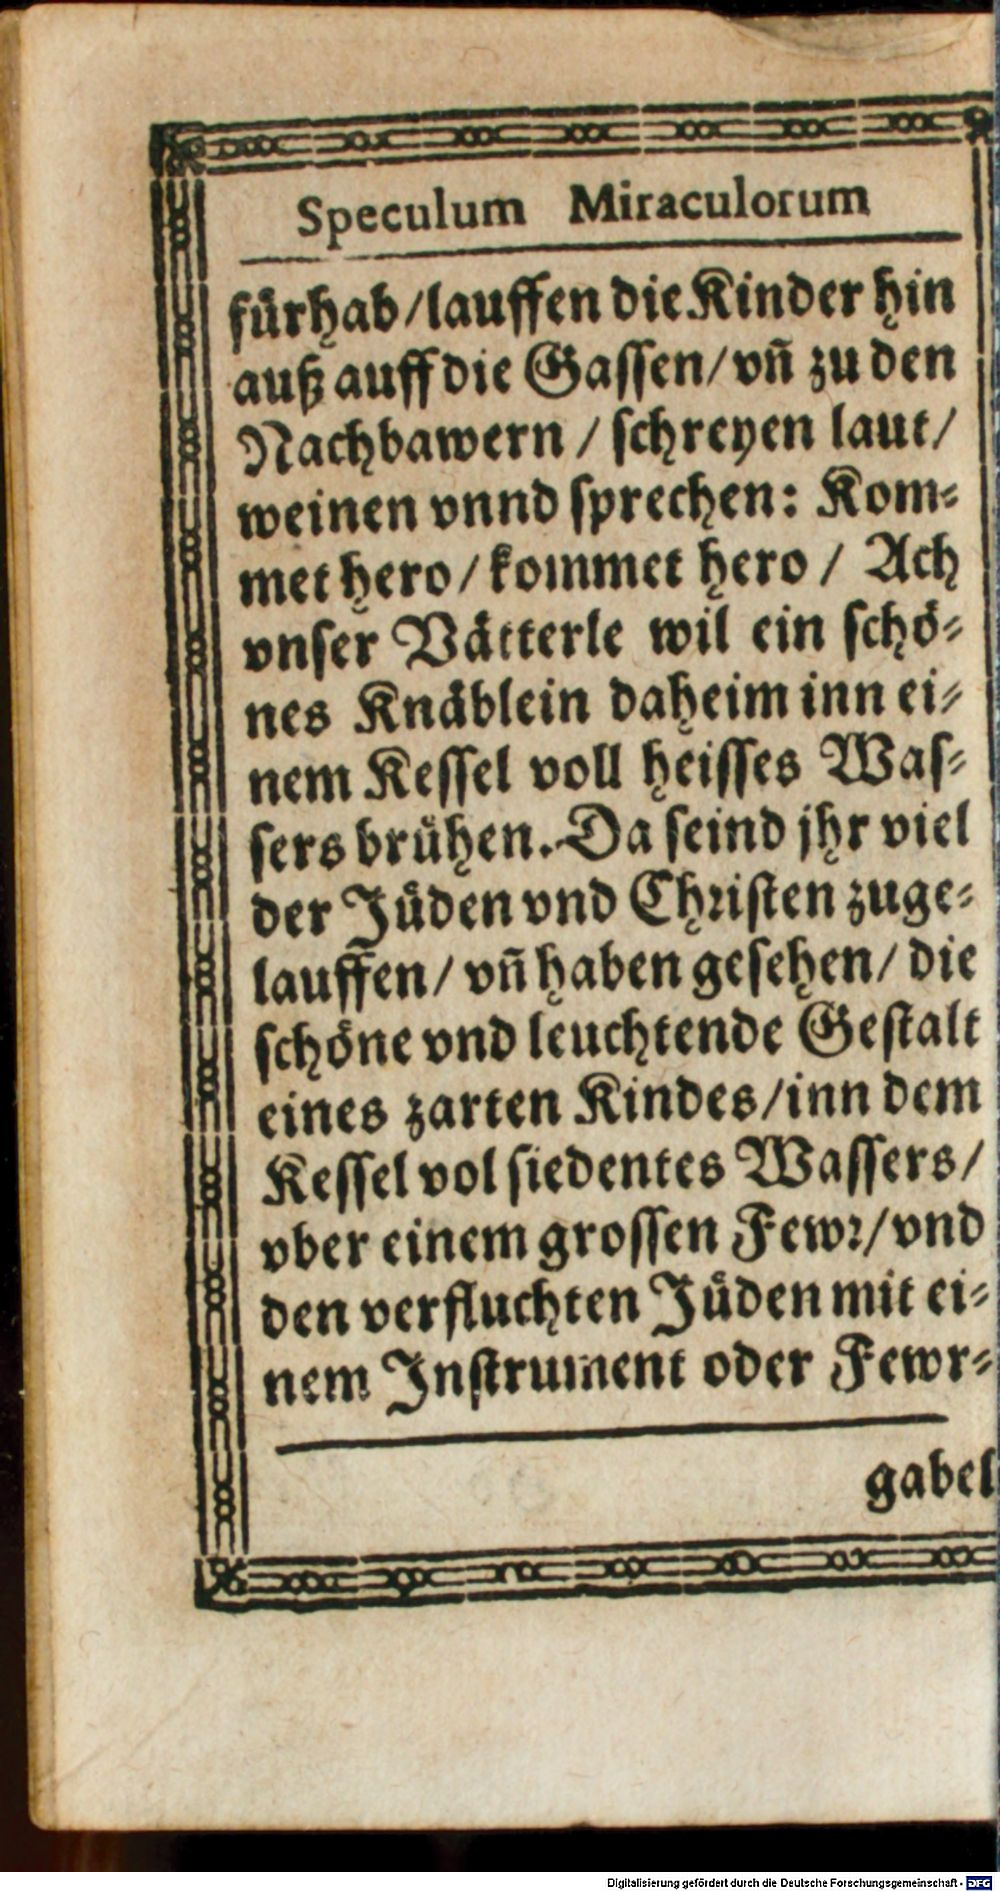 Speculum Miraculorum
fürhab/lauffen die Kinder hin
auß auff die Gassen/vn̄ zu den
Nachbawern / schreyen laut/
weinen vnnd sprechen: Kom-
met hero/kommet hero / Ach
vnser Vätterle wil ein schö-
nes Knäblein daheim inn ei-
nem Kessel voll heisses Was-
sers brühen. Da seind jhr viel
der Jüden vnd Christen zuge-
lauffen/ vn̄ haben gesehen/ die
schöne vnd leuchtende Gestalt
eines zarten Kindes/inn dem
Kessel vol siedentes Wassers/
vber einem grossen Fewr/vnd
den verfluchten Jüden mit ei-
nem Instrument oder Fewr-
gabel
Digitalisierung gefördert durch die Deutsche Forschungsgemeinschaft - DFG